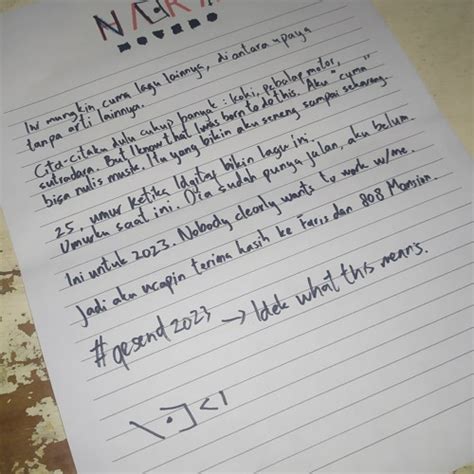 Ini mungkin, cuma lagu lainnya, di antara upaya
tanpa arti lainnya.
Cita-citaku dulu cukup banyak : koki, pebalap motor,
sutradara. But I know that I was born to do this. Aku "cuma"
bisa nulis musik. Itu yang bikin aku seneng sampai sekarang.
25, umur ketika Idgitaf bikin lagu ini.
Umurku saat ini. Dia sudah punya jalan, aku belum.
Ini untuk 2023. Nobody clearly wants to work w/me.
Jadi aku ucapin terima kasih ke Faris dan 808 Mansion.
#gesend2023 → Idek what this means.